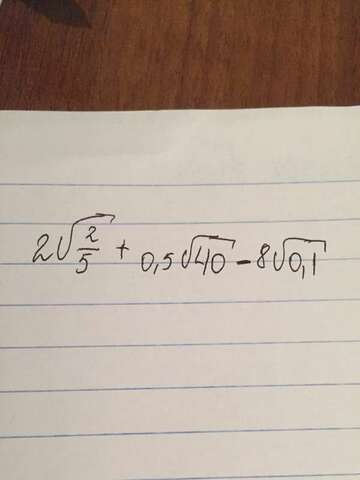 2√(2/5) + 0,5√40 - 8√0,1